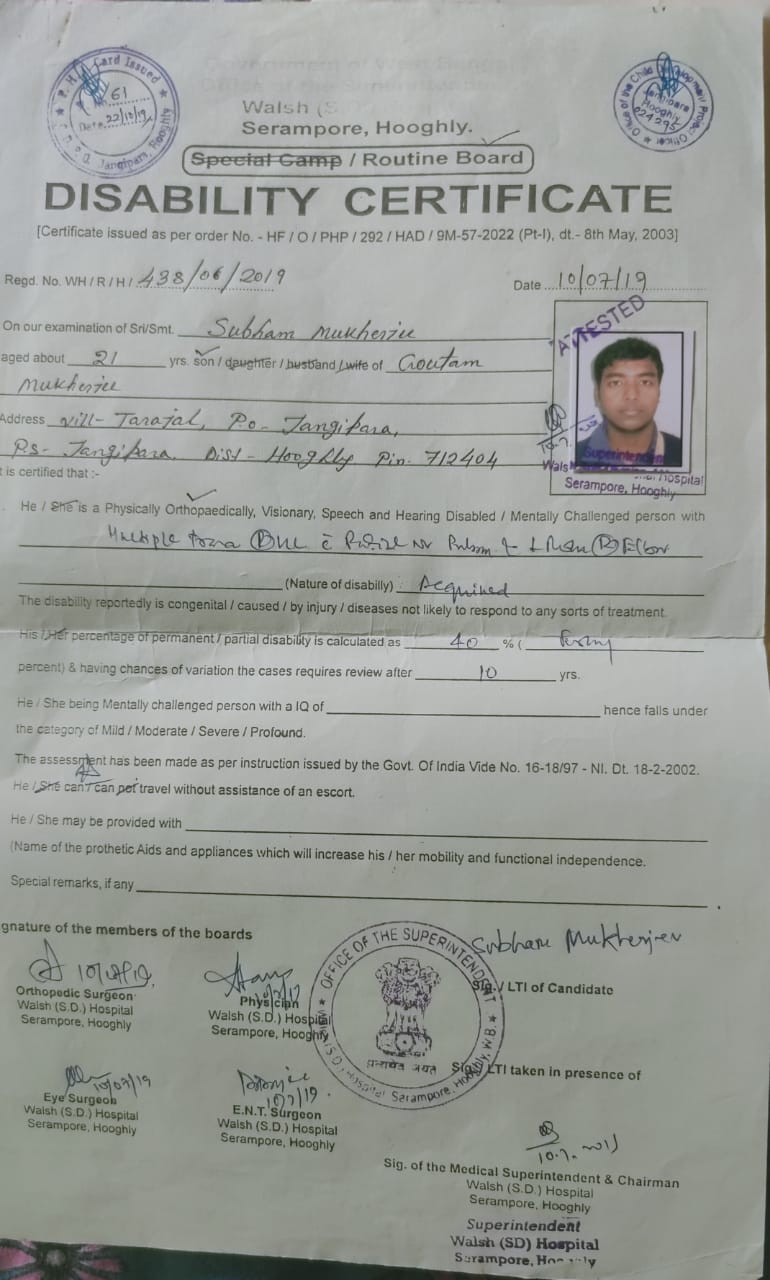 Government of West Bengal
Office of the Superintendent
Walsh (S.D.)
Serampore, Hooghly.
Card Issued
No. 61
Date 22/12/19
Jangipara, Hooghly
Office of the Child Development Project Officer
Jangipara
Hooghly
Special Camp / Routine Board
DISABILITY CERTIFICATE
[Certificate issued as per order No. - HF / O / PHP / 292 / HAD / 9M-57-2022 (Pt-I), dt.- 8th May, 2003]
Regd. No. WH / R / H / 438/06/2019
Date 10/07/19
On our examination of Sri/Smt. Subham Mukherjee
aged about 21 yrs. son / daughter / husband / wife of Goutam
Mukherjee
Address Vill- Tarajal, P.o- Jangipara,
P.s- Jangipara. Dist - Hooghly Pin- 712404
ATTESTED
Superintendent
Hospital
Serampore, Hooghly
t is certified that :-
He / She is a Physically Orthopaedically, Visionary, Speech and Hearing Disabled / Mentally Challenged person with
Multiple
(Nature of disabilly) Acquired
The disability reportedly is congenital / caused / by injury / diseases not likely to respond to any sorts of treatment.
His / Her percentage of permanent / partial disability is calculated as 40 % (
percent) & having chances of variation the cases requires review after 10 yrs.
He / She being Mentally challenged person with a IQ of hence falls under
the category of Mild / Moderate / Severe / Profound.
The assessment has been made as per instruction issued by the Govt. Of India Vide No. 16-18/97 - NI. Dt. 18-2-2002.
He / She can / can not travel without assistance of an escort.
He / She may be provided with
(Name of the prothetic Aids and appliances which will increase his / her mobility and functional independence.
Special remarks, if any
gnature of the members of the boards
Subham Mukherjee
Sig. / LTI of Candidate
Orthopedic Surgeon
Walsh (S.D.) Hospital
Serampore, Hooghly
Physician
Walsh (S.D.) Hospital
Serampore, Hooghly
OFFICE OF THE SUPERINTENDENT
Walsh (S.D.) Hospital Serampore, Hooghly, W.B.
सत्यमेव जयते
Sig. / LTI taken in presence of
10/07/19
Eye Surgeon
Walsh (S.D.) Hospital
Serampore, Hooghly
10/7/19.
E.N.T. Surgeon
Walsh (S.D.) Hospital
Serampore, Hooghly
Sig. of the Medical Superintendent & Chairman
Walsh (S.D.) Hospital
Serampore, Hooghly
Superintendent
Walsh (SD) Hospital
Serampore, Hooghly